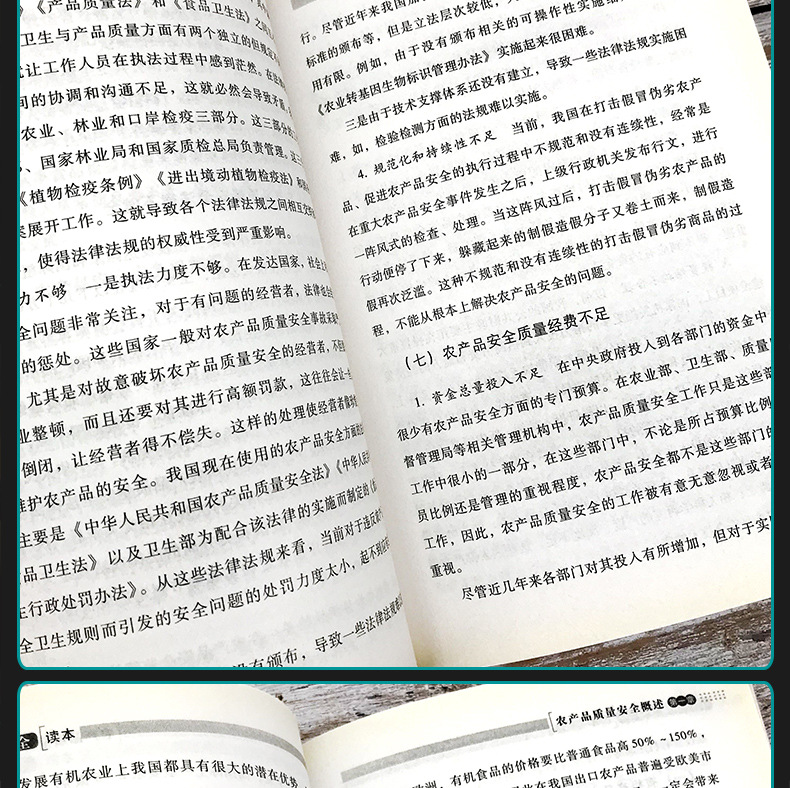 》《产品质量法》和《食品卫生法》之
卫生与产品质量方面有两个独立的
让工作人员在执法过程中感到茫然。在
间的协调和沟通不足，这就必然会导致矛
农业、林业和口岸检疫三部分。这三部分的
、国家林业局和国家质检总局负责管理。这三
《植物检疫条例》《进出境动植物检疫法》和
展开工作。这就导致各个法律法规之间相互
，使得法律法规的权威性受到严重影响。
力不够　一是执法力度不够。在发达国家，社会
全问题非常关注，对于有问题的经营者，法律
的惩处。这些国家一般对农产品质量安全事故采
，尤其是对故意破坏农产品质量安全的经营者，不但
业整顿，而且还要对其进行高额罚款，这往往会让一
倒闭，让经营者得不偿失。这样的处理使经营者
维护农产品的安全。我国现在使用的农产品安全方面
主要是《中华人民共和国农产品质量安全法》《中华人民
品卫生法》以及卫生部为配合该法律的实施而制定的
行政处罚办法》。从这些法律法规来看，当前对于违反
全卫生规则而引发的安全问题的处罚力度太小，起不到
没有颁布，导致一些法律法规
行。尽管近年来我国加
标准的颁布等，但是立法层次较低，
用有限。例如，由于没有颁布相关的可操作性实施
《农业转基因生物标识管理办法》实施起来很困难。
三是由于技术支撑体系还没有建立，导致一些法律法规实施困
难，如，检验检测方面的法规难以实施。
4. 规范化和持续性不足　当前，我国在打击假冒伪劣农产
品、促进农产品安全的执行过程中不规范和没有连续性，经常是
在重大农产品安全事件发生之后，上级行政机关发布行文，进行
一阵风式的检查、处理。当这阵风过后，打击假冒伪劣农产品的
行动便停了下来，躲藏起来的制假造假分子又卷土而来，制假造
假再次泛滥。这种不规范和没有连续性的打击假冒伪劣商品的过
程，不能从根本上解决农产品安全的问题。
（七）农产品安全质量经费不足
1. 资金总量投入不足　在中央政府投入到各部门的资金中
很少有农产品安全方面的专门预算。在农业部、卫生部、质量
督管理局等相关管理机构中，农产品质量安全工作只是这些部
工作中很小的一部分，在这些部门中，不论是所占预算比例
员比例还是管理的重视程度，农产品安全都不是这些部门的
工作，因此，农产品质量安全的工作被有意无意忽视或者
重视。
尽管近几年来各部门对其投入有所增加，但对于实
全 读本
发展有机农业上我国都具有很大的潜在优势
农产品质量安全概述 第一章
欧洲，有机食品的价格要比普通食品高50%～150%，
在我国出口农产品普遍受欧美市
定会带来